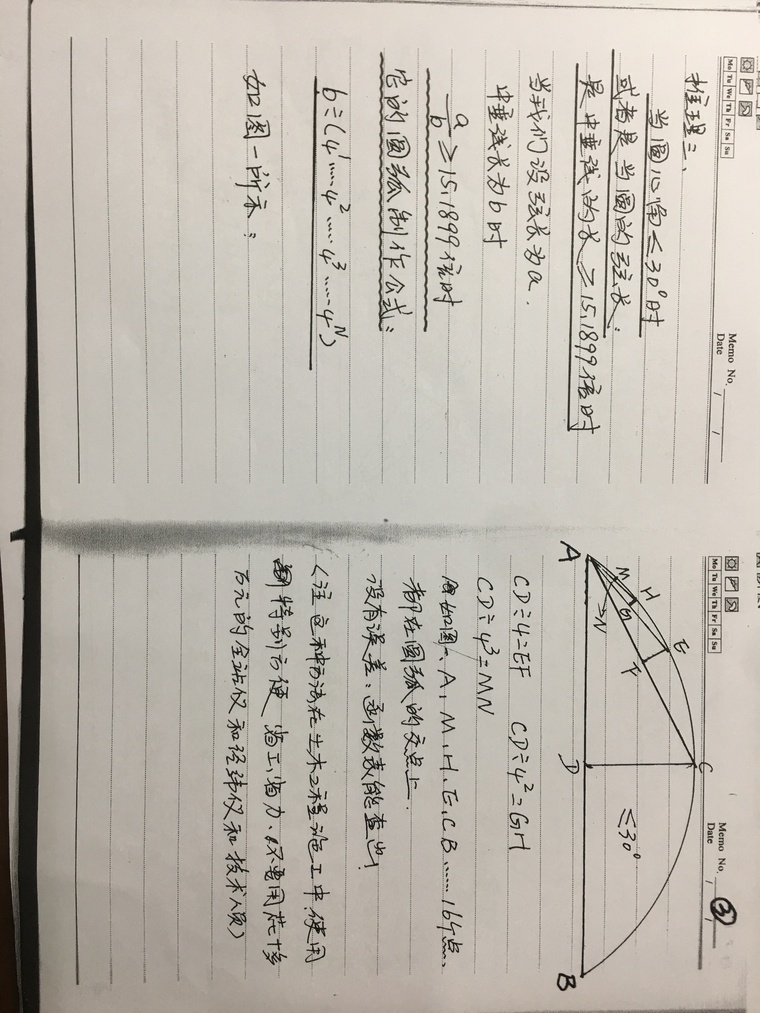 Mo Tu We Th Fr Sa Su
Memo No.
Date / /
推理三、
当圆心角≤30°时
或者是当圆的弦长:
是中垂线的长≥15.1899倍时
当我们设弦长为a.
中垂线长为b时
a/b ≥15.1899倍时
它的圆弧制作公式:
b÷(4¹……4²……4³……4ᴺ)
如图一所示:
Mo Tu We Th Fr Sa Su
Memo No.
Date / /
③
A
M
H
E
C
G
N
F
D
B
≤30°
CD÷4=EF CD÷4²=GH
CD÷4³=MN
如图一、A、M、H、E、C、B……164点……
都在圆弧的交点上.
没有误差:函数表能查出!
(注这种方法在土木工程施工中,使用
特别方便,省工,省力、不要用花十多
万元的全站仪和经纬仪和技术人员)